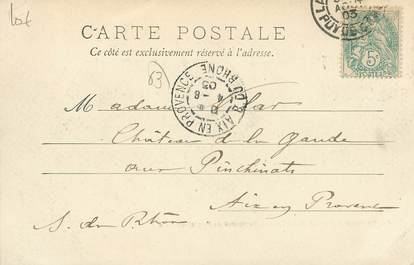 CARTE POSTALE
Ce côté est exclusivement réservé à l'adresse.
63
AIX EN PROVENCE
BOUCHES DU RHONE
5c
Madame
Château de la Gaude
aux Pinchinats
Aix en Provence
B. du Rhône